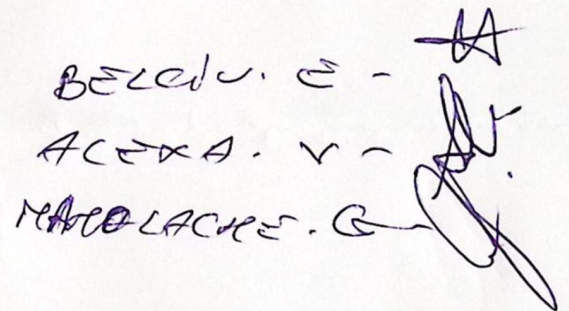 BELCIU. E -
ALEXA. V -
MANOLACHE. G -